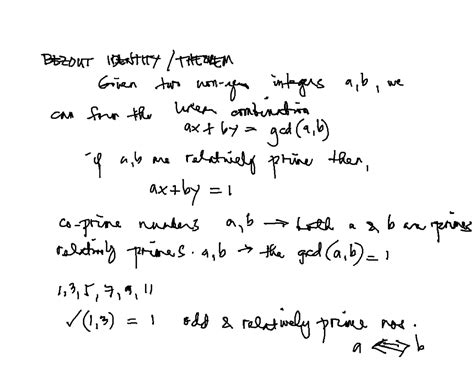 BEZOUT IDENTITY / THEOREM
Given two non-zero integers a, b, we
can form the linear combination
ax + by = gcd(a, b)
if a, b are relatively prime then,
ax + by = 1
co-prime numbers a, b → both a & b are primes
relatively primes. a, b → the gcd(a, b) = 1
1, 3, 5, 7, 9, 11
✓(1, 3) = 1 odd & relatively prime nos.
a ⟺ b